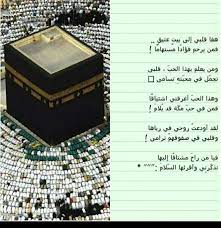 هفا قلبي إلى بيتٍ عتيق ..
فمن يرحم فؤادا مستهاما !
ومن يعلم بهذا الحب ، قلبي
تجمّل في محبته تسامى
وهذا الحبّ أغرقني اشتياقًا
فمن في حبّ مكّة قد يُلام !
لقد أودعتُ روحي في رباها
وقلبي في صفوفهمُ ترامى !
فيا من راح مشتاقًا إليها
تذكّرني وأقرئها السّلام